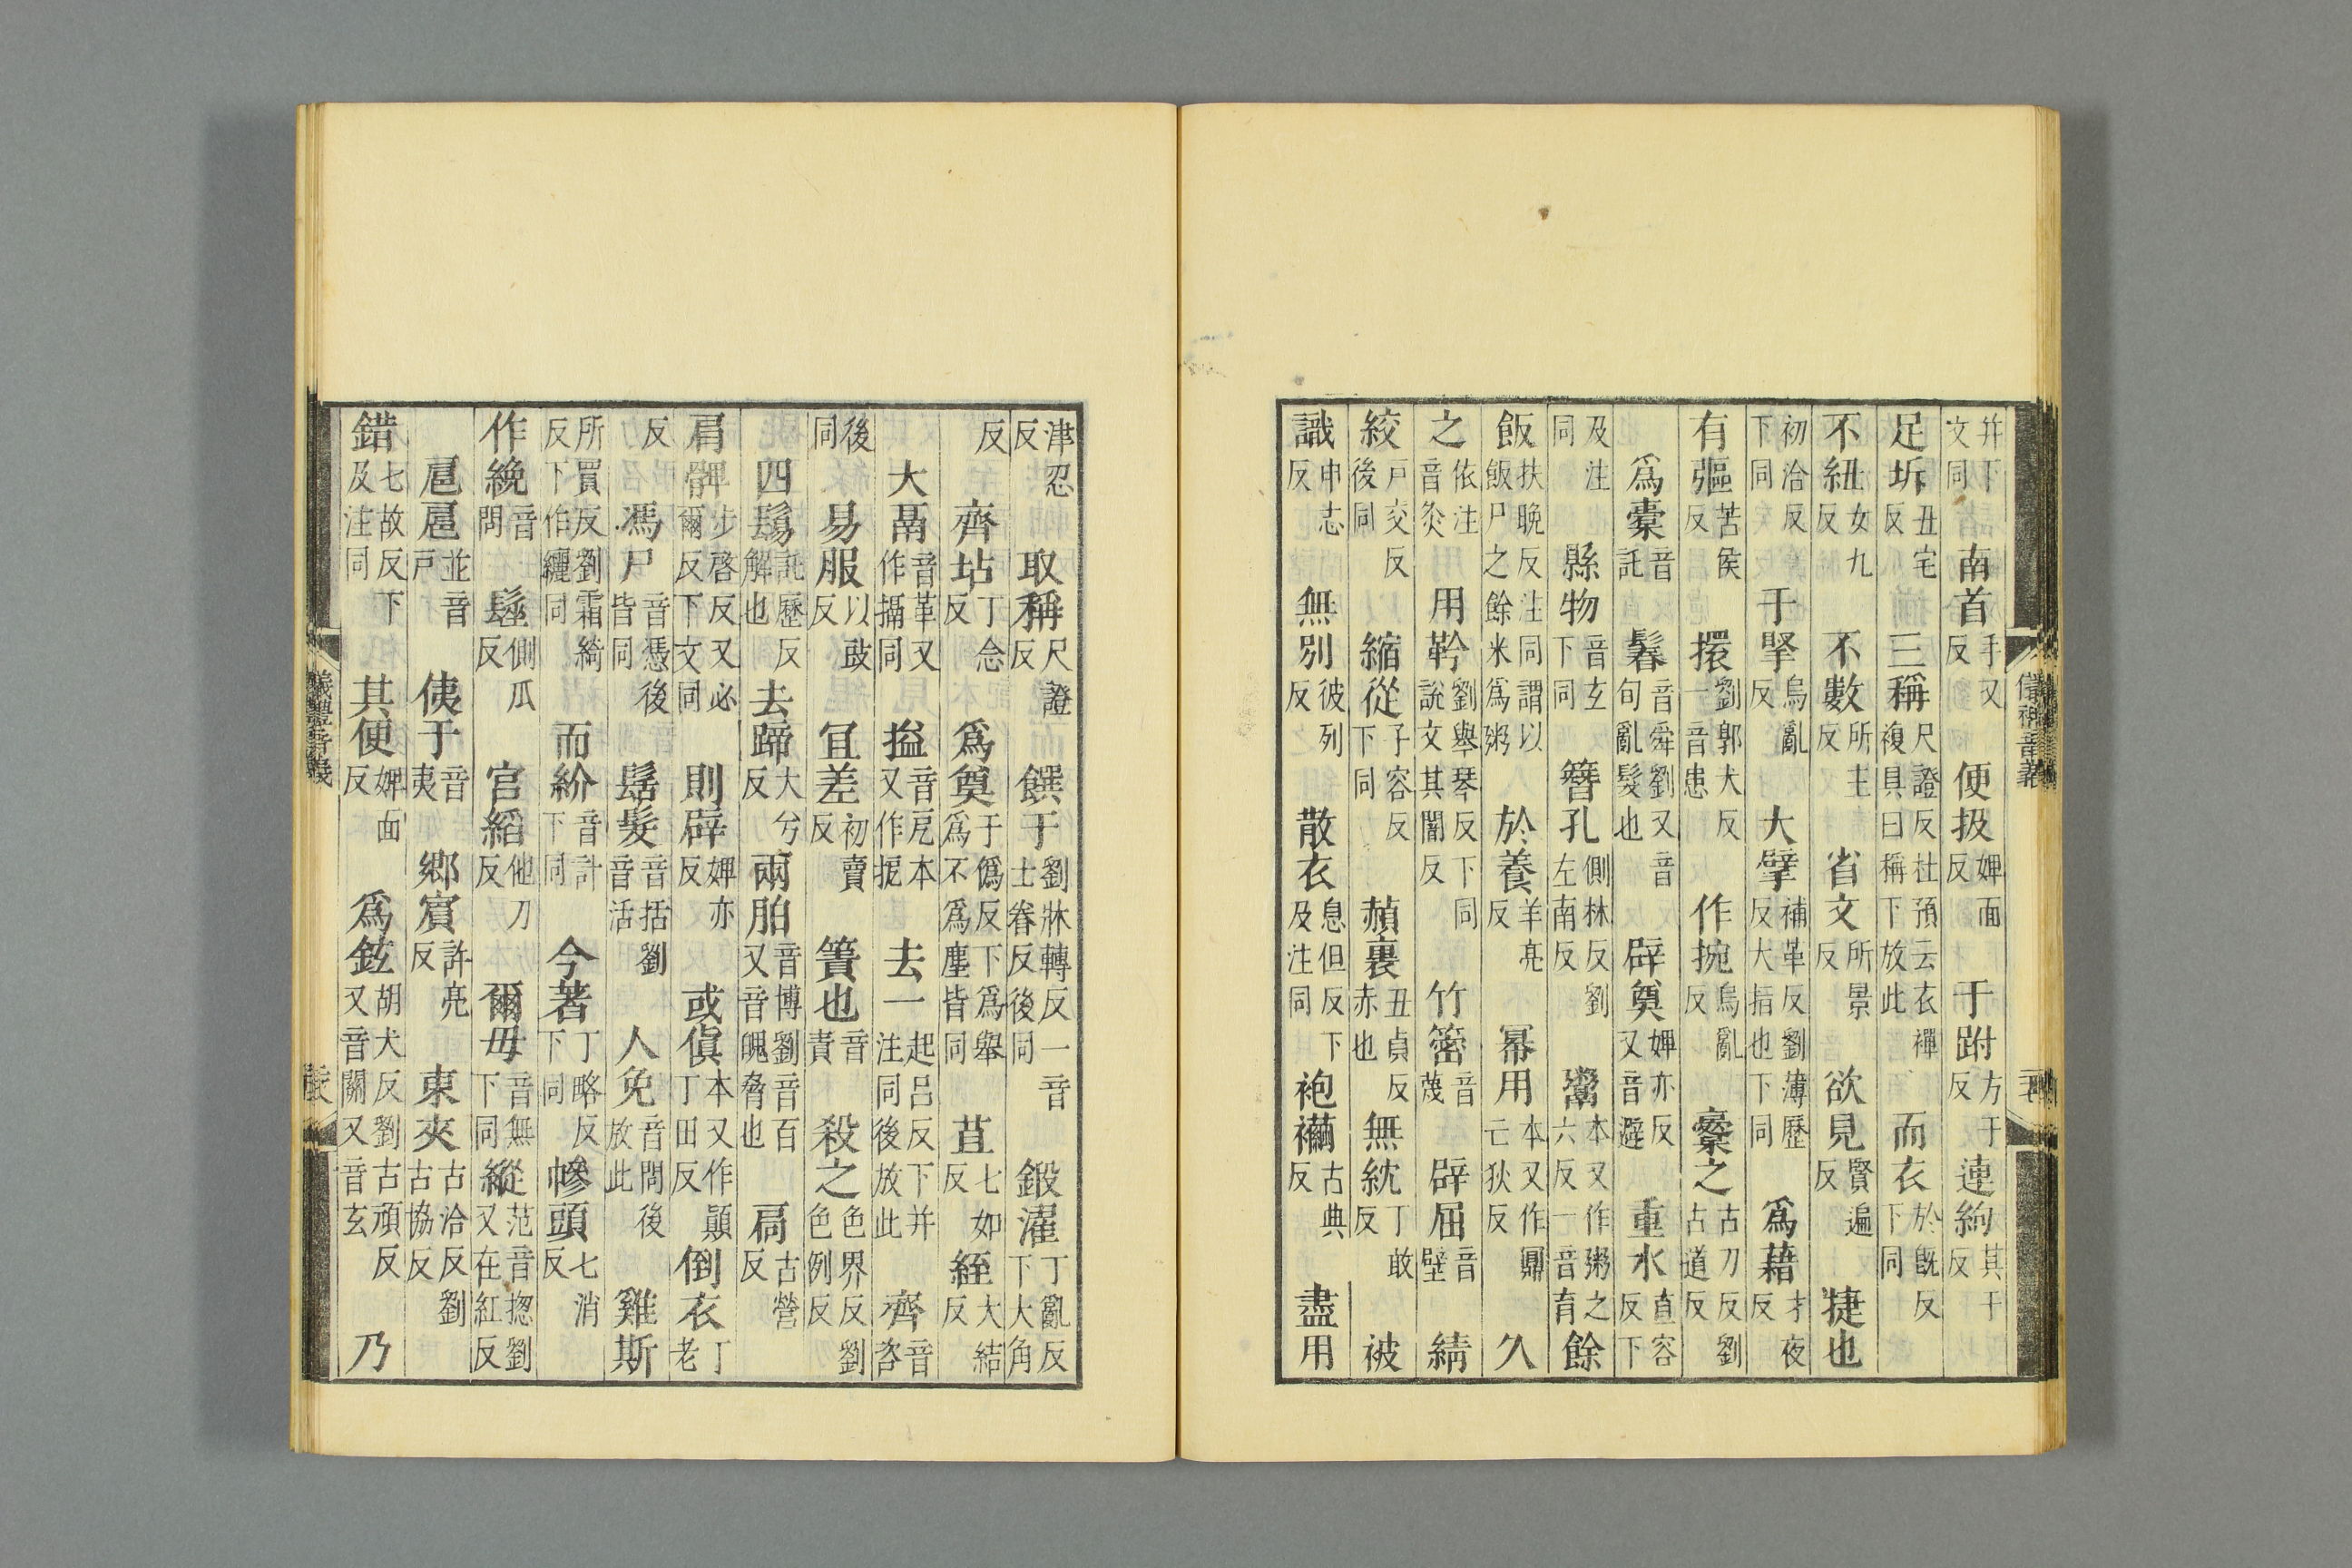 并下文同 南首手又反 劉 便扱婢面反 于跗方于反 連絇其于反
足坼丑宅反 三稱尺證反杜預云衣襌複具曰稱下放此 而衣於旣反下同
不紐女九反 不數所主反 省文所景反 欲見賢遍反 捷也
初洽反下同 于掔烏亂反 大擘補革反劉薄歷反大指也下同 爲藉才夜反
有彄苦侯反 擐劉郭犬反一音患 作捥烏亂反 橐之古刀反劉古道反
爲橐音託 鬊音舜劉又音旬亂髮也 辟奠婢亦反又音避 重水直容反下
及注同 縣物音玄下同 簪孔側林反劉左南反 鬻本又作粥之六反一音育 餘
飯扶晚反注同謂以飯尸之餘米爲粥 於養羊亮反 冪用本又作鼏亡狄反 久
之依注音灸 用靲劉舉琴反下同說文其闇反 竹䈼音蔑 辟屈音壁 綪
絞戶交反後同 縮從子容反下同 赬裏丑貞反赤也 無紞丁敢反 被
識申志反 無別彼列反 散衣息但反下及注同 袍襺古典反 盡用
儀禮音義
津忍反 取稱尺證反 饌于劉牀轉反一音士眷反後同 鍛濯丁亂反下大角
反 齊坫丁念反 爲奠于僞反下爲舉爲不爲塵皆同 苴七如反 絰大結反
大鬲音革又作䰛同 搤音戹本又作扼 去一起呂反下并注同後放此 齊音咨
後同 易服以豉反 宜差初賣反 簀也音責 殺之色界反劉色例反
四鬄託歷反解也 去蹄大兮反 兩胉音博劉音百又音魄脅也 扃古營反
肩髀步啓反又必爾反下文同 則辟婢亦反 或傎本又作顛丁田反 倒衣丁老
反 馮尸音憑後皆同 髺髮音括劉音活 人免音問後放此 雞斯
所買反劉霜綺反下作纚同 而紒音計下同 今著丁略反下同 幓頭七消反
作絻音問 髽側瓜反 官縚他刀反 爾毋音無下同 縱從范音揔劉又在紅反
扈扈並音戶 侇于音夷 鄉賓許亮反 東夾古洽反劉古協反
錯七故反下及注同 其便婢面反 爲鉉胡犬反劉古頑反又音關又音玄 乃
儀禮音義